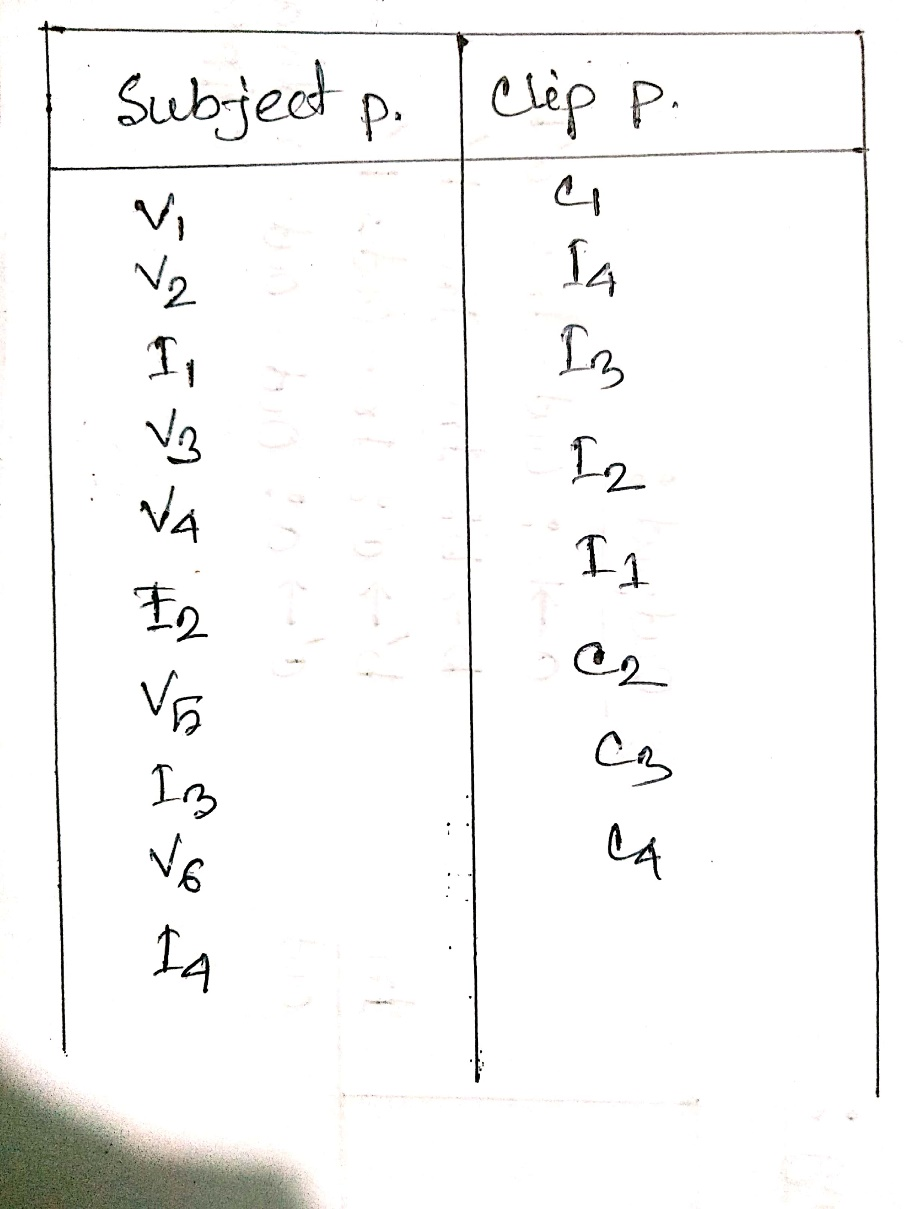 Subject p. Clip p.
V1 C1
V2 I4
I1 I3
V3 I2
V4 I1
I2 C2
V5 C3
I3 C4
V6
I4